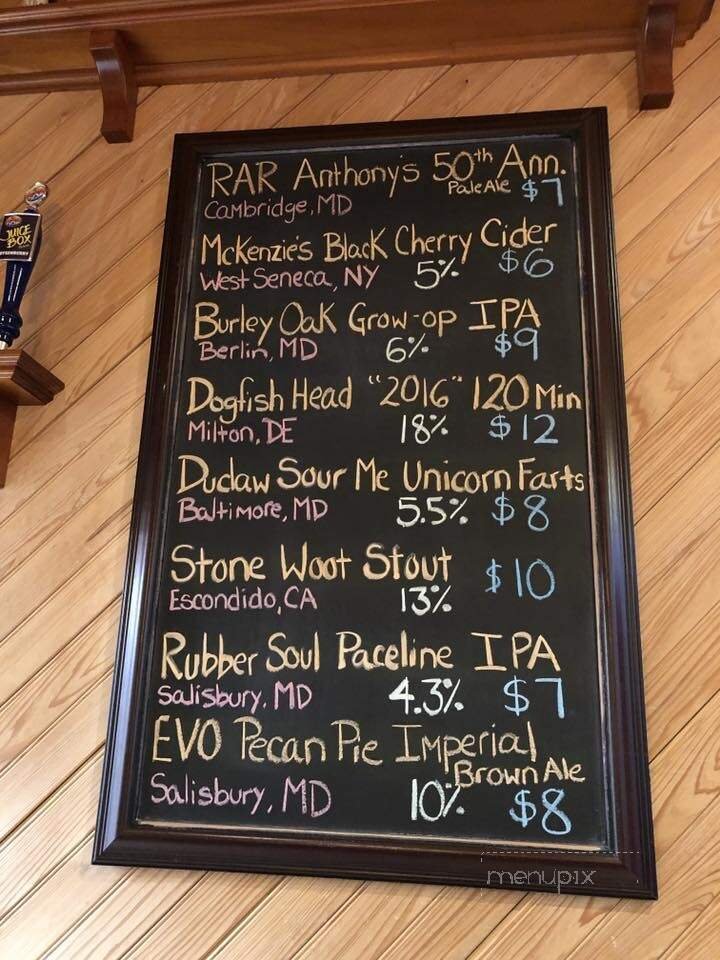 RAR Anthony's 50th Ann.
Pale Ale $7
Cambridge, MD
McKenzie's Black Cherry Cider
West Seneca, NY 5% $6
Burley Oak Grow-op IPA
Berlin, MD 6% $9
Dogfish Head "2016" 120 Min
Milton, DE 18% $12
Duclaw Sour Me Unicorn Farts
Baltimore, MD 5.5% $8
Stone Woot Stout
Escondido, CA 13% $10
Rubber Soul Paceline IPA
Salisbury, MD 4.3% $7
EVO Pecan Pie Imperial
Brown Ale
Salisbury, MD 10% $8
JUICE
BOX
menupix